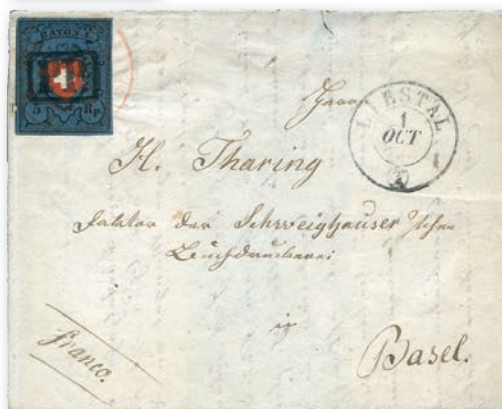 RAYON I.
5 Rp
LIESTAL
1
OCT
Herrn
H. Tharing
Faktor der Schweighauser'schen
Buchdruckerei
in
Basel.
franco.